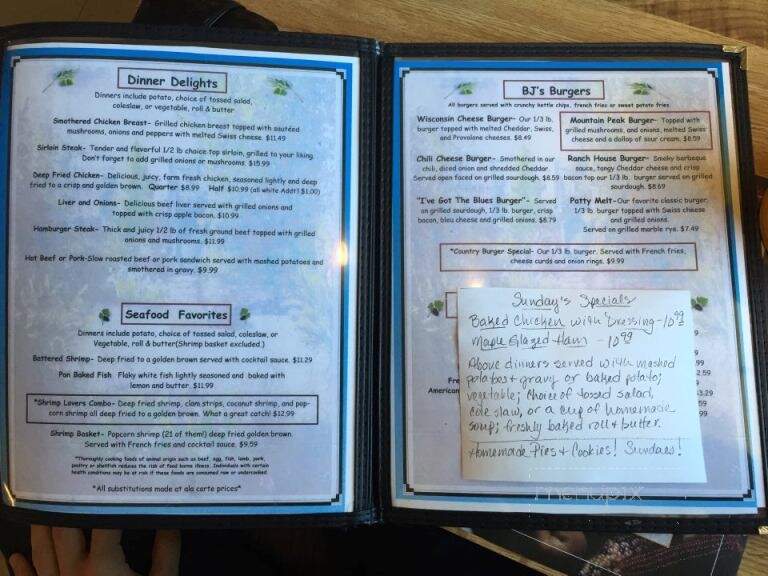 Dinner Delights
Dinners include potato, choice of tossed salad,
coleslaw, or vegetable, roll & butter
Smothered Chicken Breast- Grilled chicken breast topped with sauteed
mushrooms, onions and peppers with melted Swiss cheese. $11.49
Sirloin Steak- Tender and flavorful 1/2 lb choice top sirloin, grilled to your liking.
Don't forget to add grilled onions or mushrooms. $15.99
Deep Fried Chicken- Delicious, juicy, farm fresh chicken, seasoned lightly and deep
fried to a crisp and golden brown. Quarter $8.99 Half $10.99 (all white Addt'l $1.00)
Liver and Onions- Delicious beef liver served with grilled onions and
topped with crisp apple bacon. $10.99
Hamburger Steak- Thick and juicy 1/2 lb of fresh ground beef topped with grilled
onions and mushrooms. $11.99
Hot Beef or Pork-Slow roasted beef or pork sandwich served with mashed potatoes and
smothered in gravy. $9.99
Seafood Favorites
Dinners include potato, choice of tossed salad, coleslaw, or
Vegetable, roll & butter(Shrimp basket excluded.)
Battered Shrimp- Deep fried to a golden brown served with cocktail sauce. $11.29
Pan Baked Fish Flaky white fish lightly seasoned and baked with
lemon and butter. $11.99
*Shrimp Lovers Combo- Deep fried shrimp, clam strips, coconut shrimp, and pop-
corn shrimp all deep fried to a golden brown. What a great catch! $12.99
Shrimp Basket- Popcorn shrimp (21 of them!) deep fried golden brown.
Served with French fries and cocktail sauce. $9.59
*Thoroughly cooking foods of animal origin such as beef, egg, fish, lamb, pork,
poultry or shellfish reduces the risk of food borne illness. Individuals with certain
health conditions may be at risk if these foods are consumed raw or undercooked.
*All substitutions made at ala carte prices*
BJ's Burgers
All burgers served with crunchy kettle chips, french fries or sweet potato fries
Wisconsin Cheese Burger- Our 1/3 lb.
burger topped with melted Cheddar, Swiss,
and Provalone cheeses. $8.49
Mountain Peak Burger- Topped with
grilled mushrooms, and onions, melted Swiss
cheese and a dollop of sour cream. $8.59
Chili Cheese Burger- Smothered in our
chili, diced onion and shredded Cheddar.
Served open faced on grilled sourdough. $8.59
Ranch House Burger- Smoky barbecue
sauce, tangy Cheddar cheese and crisp
bacon top our 1/3 lb. burger served on grilled
sourdough. $8.69
"I've Got The Blues Burger"- Served
on grilled sourdough, 1/3 lb. burger, crisp
bacon, bleu cheese and grilled onions. $8.79
Patty Melt-Our favorite classic burger.
1/3 lb. burger topped with Swiss cheese
and grilled onions.
Served on grilled marble rye. $7.49
*Country Burger Special- Our 1/3 lb. burger. Served with French fries,
cheese curds and onion rings. $9.99
Sunday's Specials
Baked Chicken with Dressing-10.99
Maple Glazed Ham -10.99
Above dinners served with mashed
potatoes + gravy or baked potato;
vegetable; choice of tossed salad,
cole slaw, or a cup of homemade
soup; freshly baked roll + butter.
Homemade Pies + Cookies! Sundaes!
Fre
American
.99
2.59
$3.29
menupix